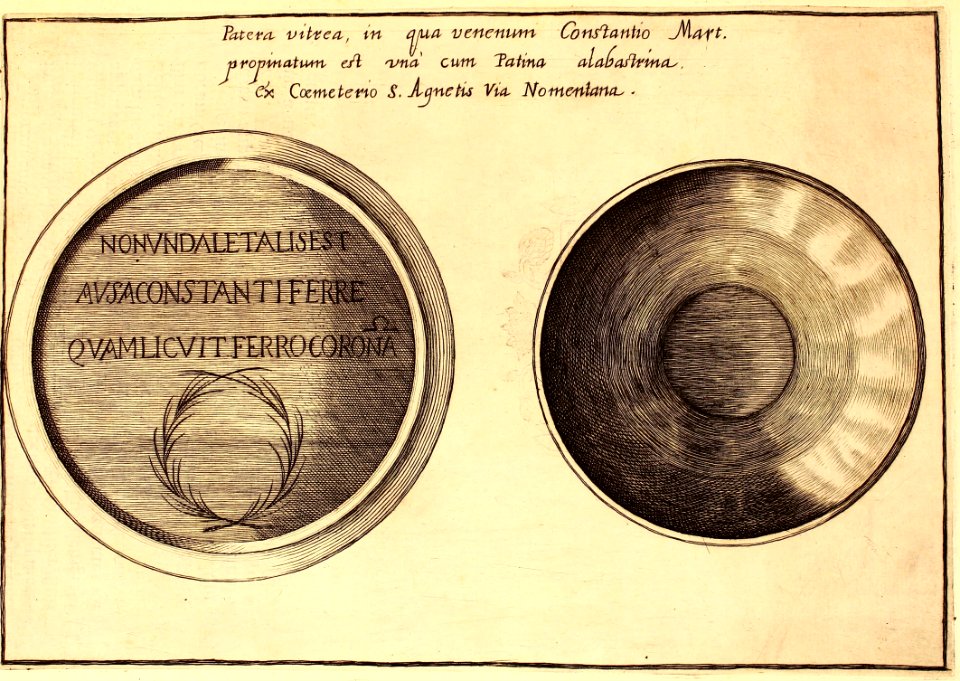 Patera vitrea, in qua venenum Constantio Mart.
propinatum est vnà cum Patina alabastrina.
ex Cœmeterio S. Agnetis Via Nomentana.
NONVNDALETALISEST
AVSACONSTANTIFERRE
QVAMLICVITFERROCORONA